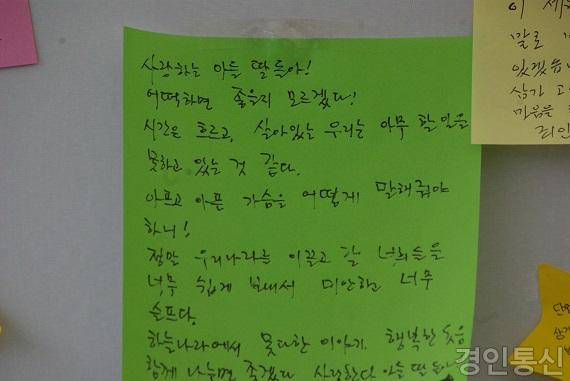 사랑하는 아들 딸들아!
어떡하면 좋을지 모르겠다!
시간은 흐르고, 살아있는 우리는 아무 할 일을
못하고 있는 것 같다.
아프고 아픈 가슴을 어떻게 말해줘야
하니!
정말 우리나라를 이끌고 갈 너희들을
너무 쉽게 보내서 미안하고 너무
슬프다.
하늘나라에서 못다한 이야기 행복한 웃음
함께 나누면 좋겠다 사랑한다 아들 딸들아
이 세
말로
있겠습니
삼가 고
마음을
죄인
단원
삼가
경인통신